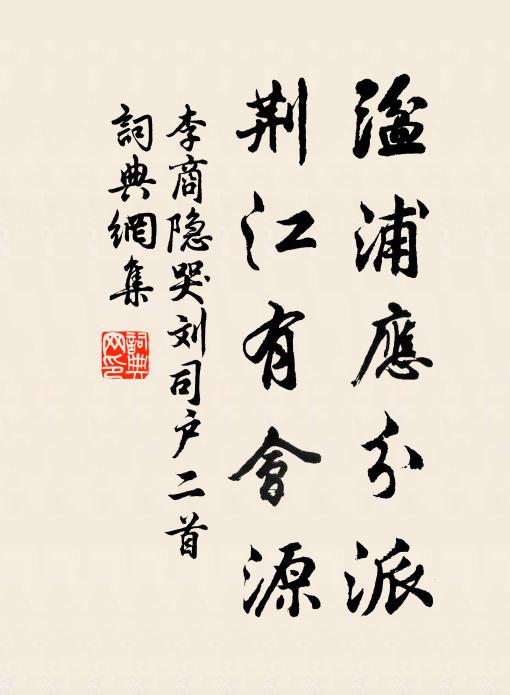 湓浦應分派
荆江有會源
李商隐哭刘司户二首
詞典網集
詞典网印